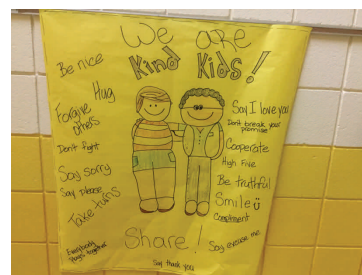 We are
Kind Kids!
Be nice
Hug
Forgive
others
Don't fight
Say sorry
Say please
Take turns
Everybody
plays together
Say I love you
Don't break your
promise
Cooperate
High Five
Be truthful
Smile
Compliment
Share!
Say excuse me
Say thank you